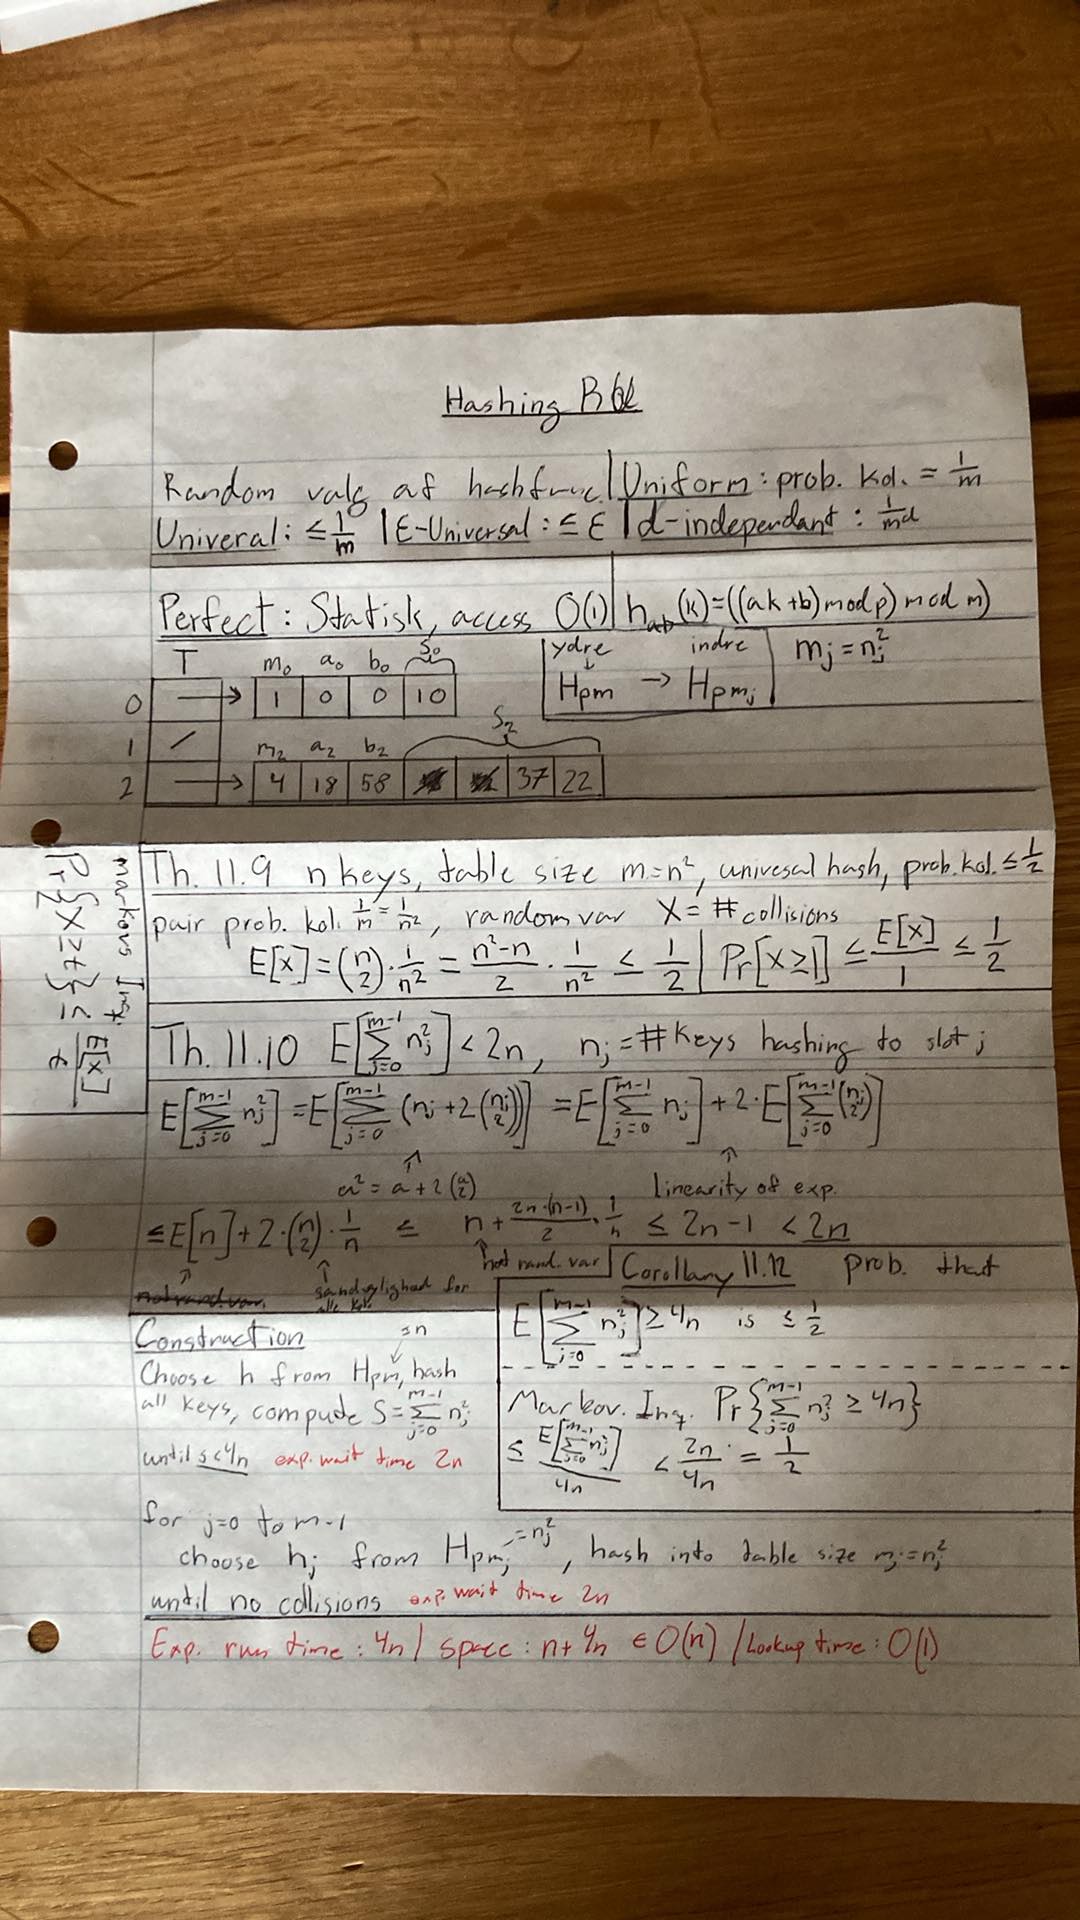 Hashing
Random valg af hashfunc | Uniform: prob. kol. = 1/m
Univeral: ≤ 1/m | E-Universal: ≤ E | d-independant: 1/m^d
Perfect: Statisk, access O(1) | h_ab(k) = ((ak+b) mod p) mod m)
T m₀ a₀ b₀ S₀
ydre ↓ indre
m_j = n_j²
0 → 1 0 0 10
H_pm → H_pm_j
1 / m₂ a₂ b₂ S₂
2 → 4 18 58 37 22
markovs Inq.
Pr{X ≥ t} ≤ E[x]/t
Th. 11.9 n keys, table size m = n², univesal hash, prob. kol. ≤ 1/2
pair prob. kol. 1/m = 1/n², random var X = # collisions
E[x] = (n 2) · 1/n² = n²-n/2 · 1/n² ≤ 1/2 | Pr[X ≥ 1] ≤ E[x]/1 ≤ 1/2
Th. 11.10 E[∑_{j=0}^{m-1} n_j²] < 2n, n_j = # keys hashing to slot j
E[∑_{j=0}^{m-1} n_j²] = E[∑_{j=0}^{m-1} (n_j + 2(n_j 2))] = E[∑_{j=0}^{m-1} n_j] + 2 · E[∑_{j=0}^{m-1} (n_j 2)]
a² = a + 2(a 2) linearity of exp.
≤ E[n] + 2 · (n 2) · 1/n ≤ n + 2n·(n-1)/2 · 1/n ≤ 2n-1 < 2n
not rand. var
not rand. var. sandsylighed for
alle kol.
Corollary 11.12 prob. that
E[∑_{j=0}^{m-1} n_j²] ≥ 4n is ≤ 1/2
Markov. Inq. Pr{∑_{j=0}^{m-1} n_j² ≥ 4n}
≤ E[∑_{j=0}^{m-1} n_j²]/4n < 2n/4n = 1/2
Construction
=n
Choose h from H_pm, hash
all keys, compute S = ∑_{j=0}^{m-1} n_j²
until s<4n exp. wait time 2n
for j=0 to m-1
choose h_j from H_pm_j =n_j², hash into table size m_j = n_j²
until no collisions exp. wait time 2n
Exp. run time: 4n / space: n + 4n ∈ O(n) / Lookup time: O(1)